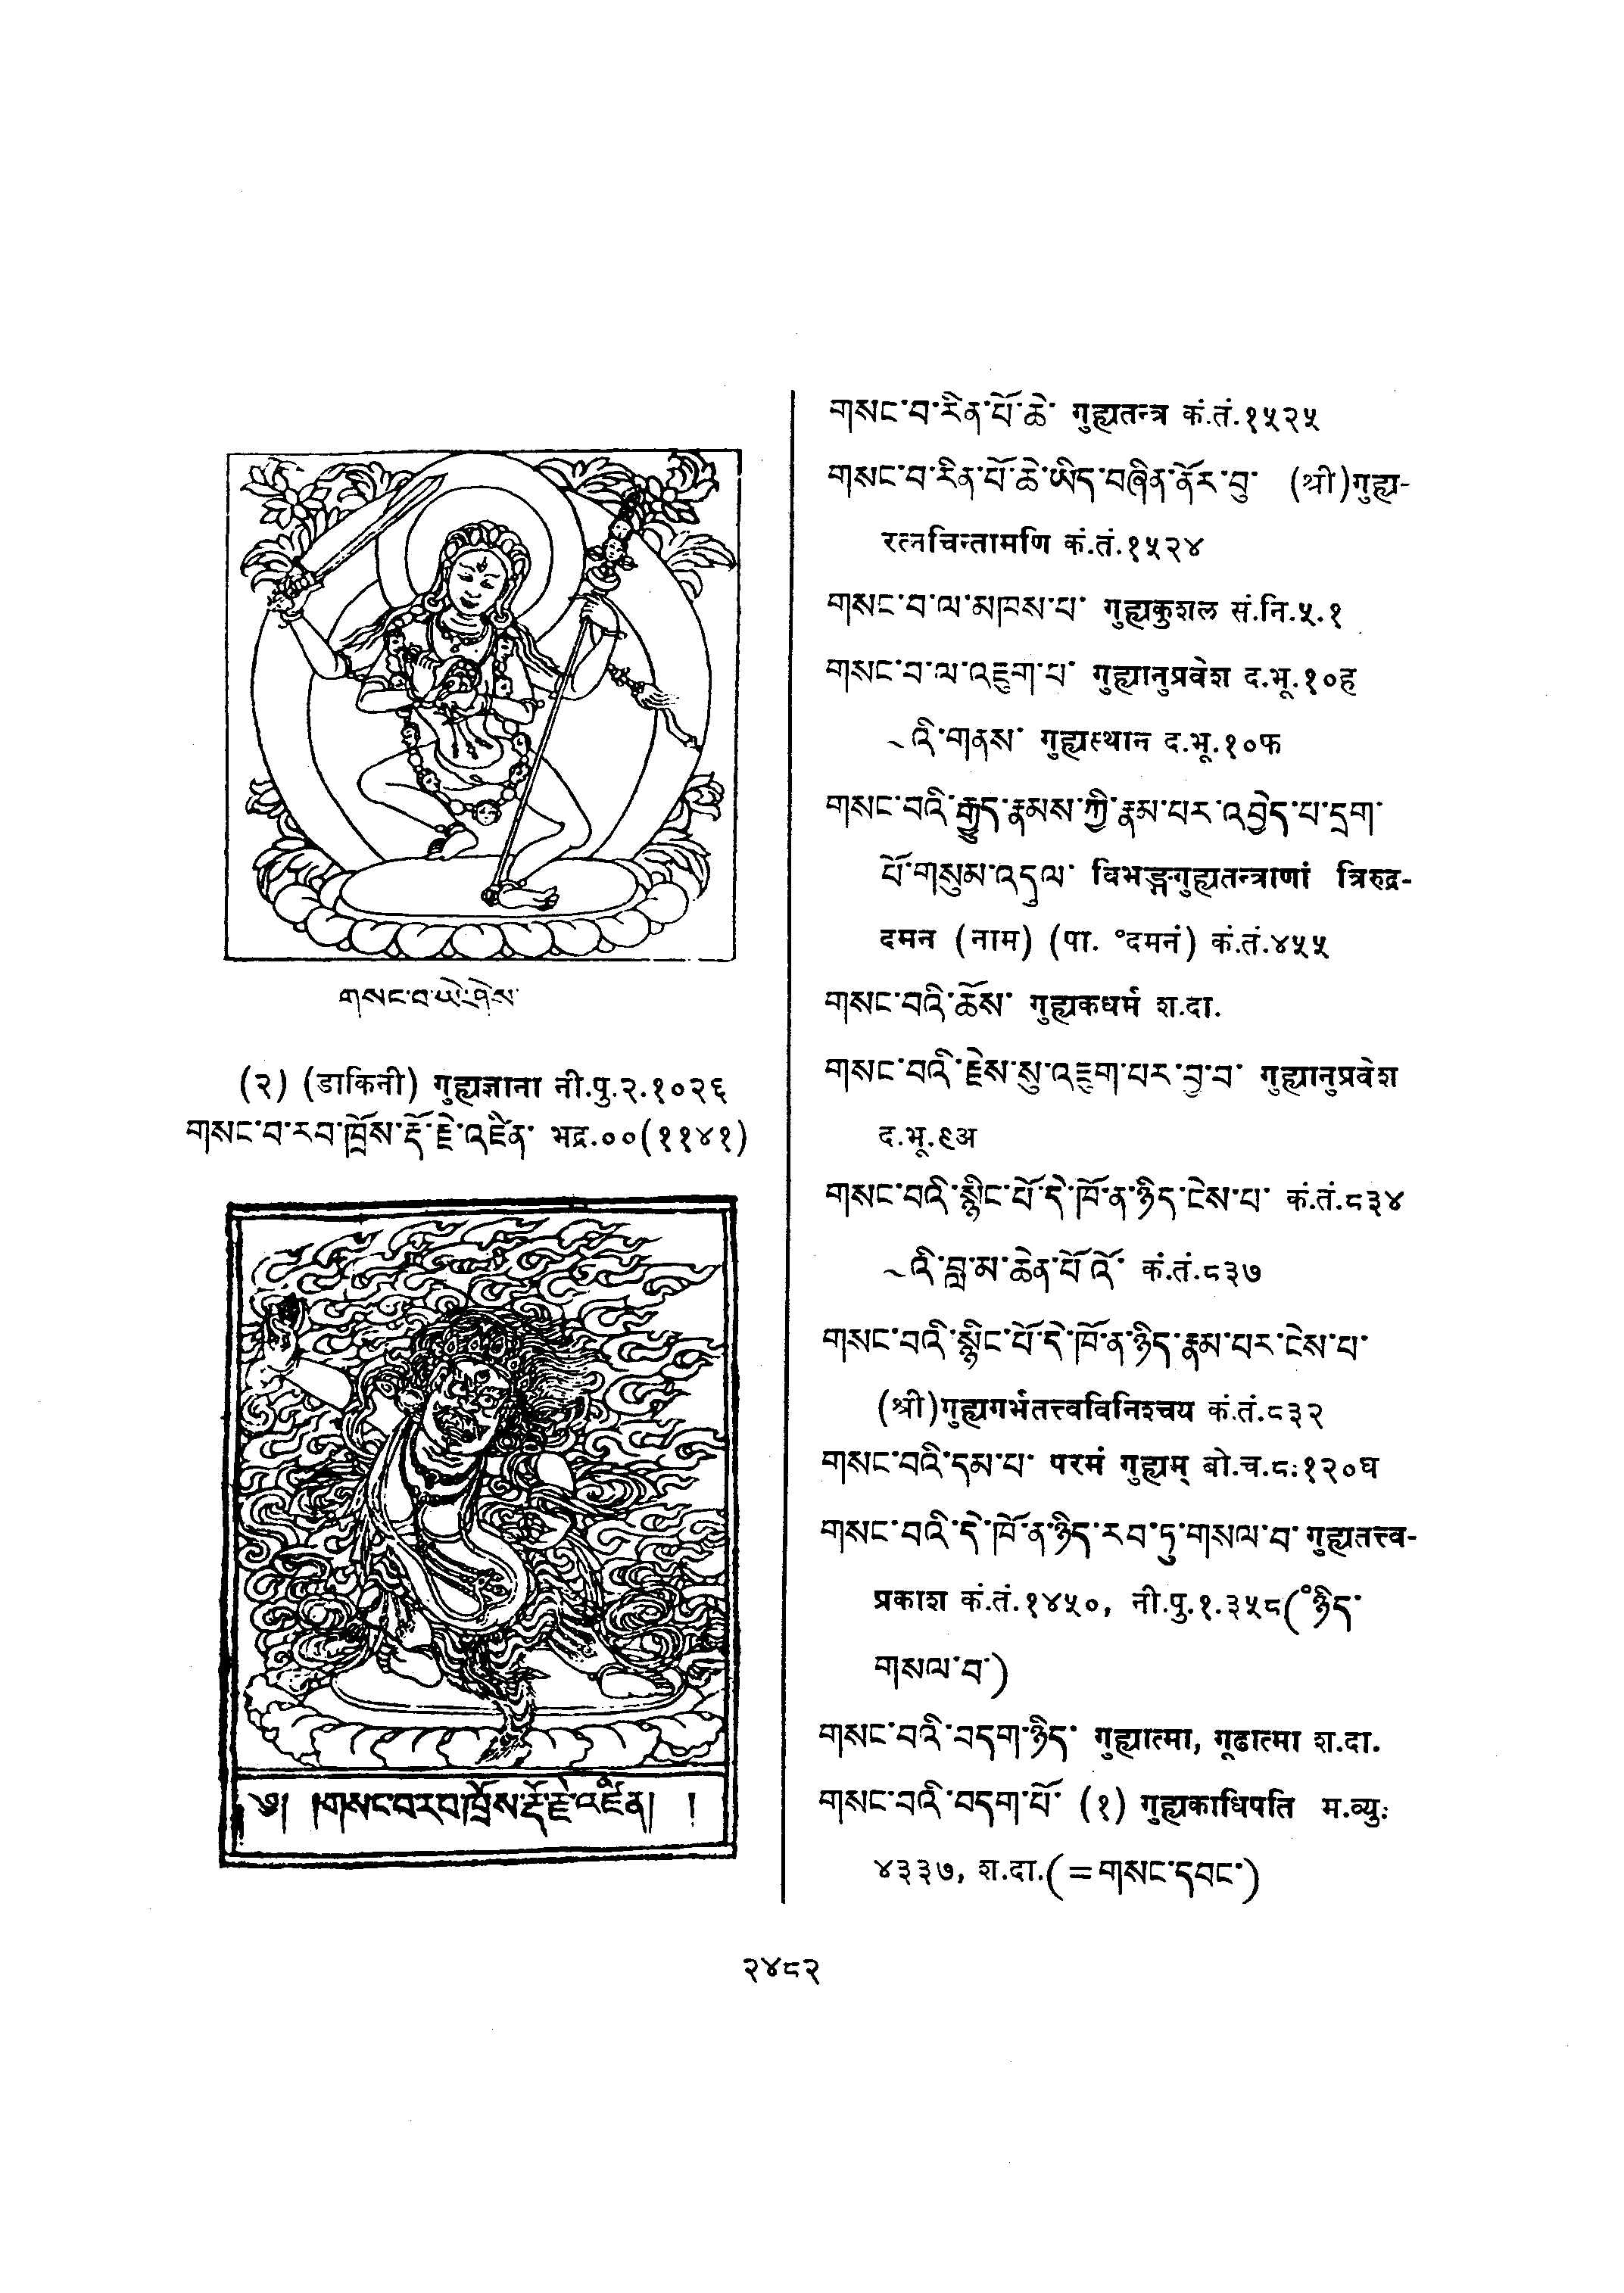 གསང་བ་ཡེ་ཤེས་
(२) (डाकिनी) गुह्यज्ञाना नी.पु.२.१०२६
གསང་བ་རབ་ཁྲོས་རྡོ་རྗེ་འཛིན་ भद्र.००(११४१)
༄། །གསང་བ་རབ་ཁྲོས་རྡོ་རྗེ་འཛིན། །
གསང་བ་རིན་པོ་ཆེ་ गुह्यतन्त्र कं.तं.१५२५
གསང་བ་རིན་པོ་ཆེ་ཡིད་བཞིན་ནོར་བུ་ (श्री)गुह्य-
रत्नचिन्तामणि कं.तं.१५२४
གསང་བ་ལ་མཁས་པ་ गुह्यकुशल सं.नि.५.१
གསང་བ་ལ་འཇུག་པ་ गुह्यानुप्रवेश द.भू.१०ह
~འི་གནས་ गुह्यस्थान द.भू.१०फ
གསང་བའི་རྒྱུད་རྣམས་ཀྱི་རྣམ་པར་འབྱེད་པ་དྲག་
པོ་གསུམ་འདུལ་ विभङ्गगुह्यतन्त्राणां त्रिरुद्र-
दमन (नाम) (पा. °दमनं) कं.तं.४५५
གསང་བའི་ཆོས་ गुह्यकधर्म श.दा.
གསང་བའི་རྗེས་སུ་འཇུག་པར་བྱ་བ་ गुह्यानुप्रवेश
द.भू.९अ
གསང་བའི་སྙིང་པོ་དེ་ཁོ་ན་ཉིད་ངེས་པ་ कं.तं.८३४
~འི་བླ་མ་ཆེན་པོ་འོ་ कं.तं.८३७
གསང་བའི་སྙིང་པོ་དེ་ཁོ་ན་ཉིད་རྣམ་པར་ངེས་པ་
(श्री)गुह्यगर्भतत्त्वविनिश्चय कं.तं.८३२
གསང་བའི་དམ་པ་ परमं गुह्यम् बो.च.८:१२०घ
གསང་བའི་དེ་ཁོ་ན་ཉིད་རབ་ཏུ་གསལ་བ་ गुह्यतत्त्व-
प्रकाश कं.तं.१४५०, नी.पु.१.३५८(°ཉིད་
གསལ་བ་)
གསང་བའི་བདག་ཉིད་ गुह्यात्मा, गूढात्मा श.दा.
གསང་བའི་བདག་པོ་ (१) गुह्यकाधिपति म.व्यु:
४३३७, श.दा.(=གསང་དབང་)
२४८२